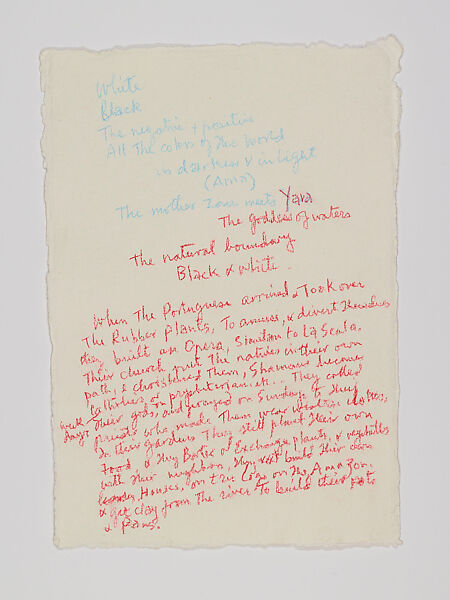 White
Black
The negative + positive
All The colors of The World
in darkness & in light
(Ama)
The mother Zone meets Yara
The Goddess of waters
The natural boundary
Black & white.
When The Portuguese arrived & Took over
The Rubber Plants, To amuse, & divert Themselves
they built an Opera, Similar to La Scala.
Their church put the natives in their own
path, & christened Them, Shamans became
Catholics or presbyterian. etc.. They called
week days Their gods, and prayed on Sundays to They
priests who, made Them wear western clothes,
In their Gardens They still plant Their own
Food, & They Barter or Exchange plants, & vegetables
with Their neighbors, They build Their own
Houses, on The on The Ama Zon.
& get clay from The river To build their pots
& Pans.